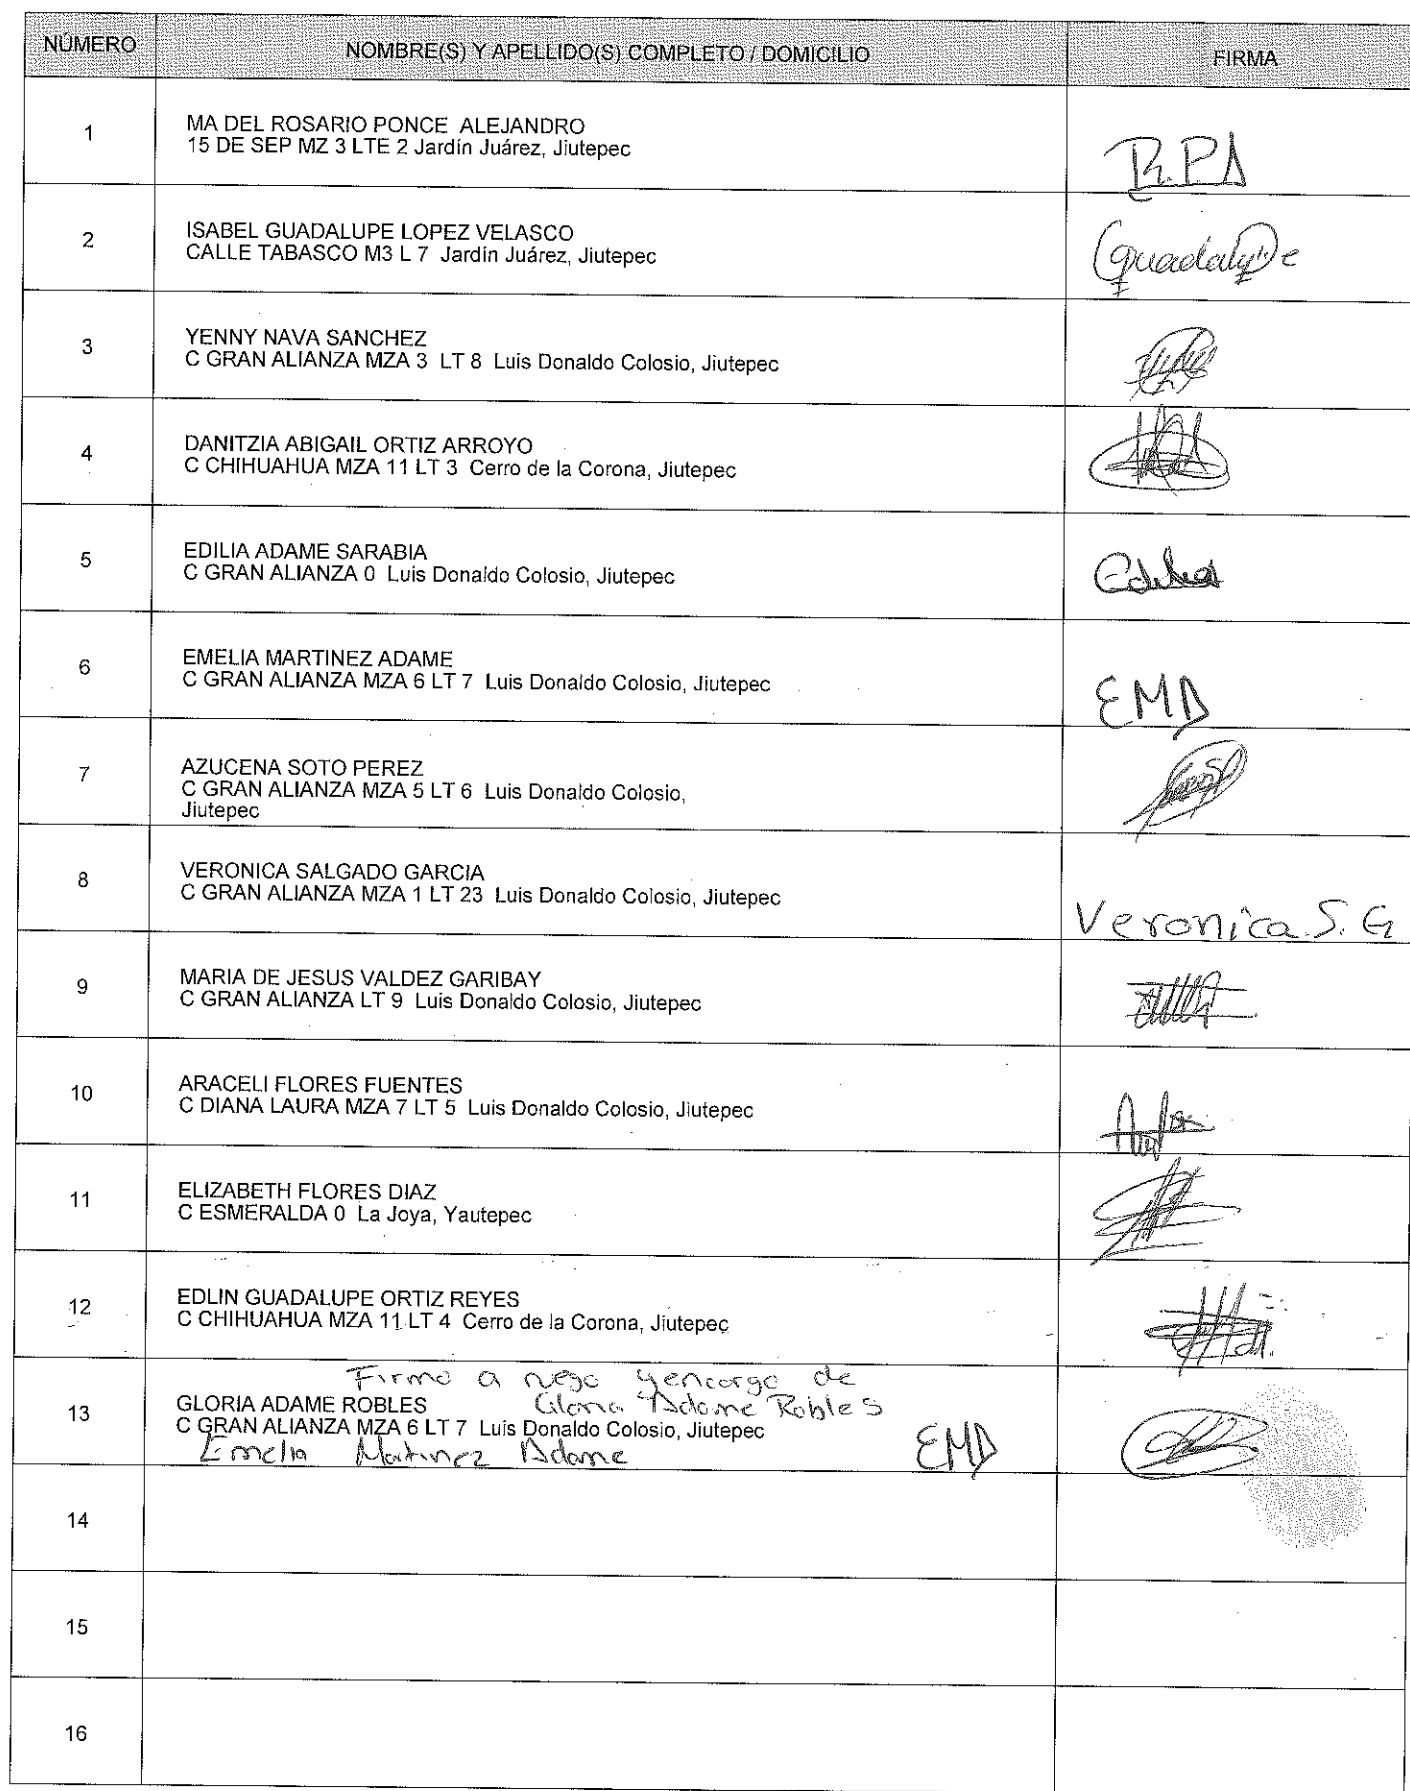 NÚMERO NOMBRE(S) Y APELLIDO(S) COMPLETO / DOMICILIO FIRMA
1 MA DEL ROSARIO PONCE ALEJANDRO
15 DE SEP MZ 3 LTE 2 Jardín Juárez, Jiutepec
R.P.A
2 ISABEL GUADALUPE LOPEZ VELASCO
CALLE TABASCO M3 L 7 Jardín Juárez, Jiutepec
Guadalupe
3 YENNY NAVA SANCHEZ
C GRAN ALIANZA MZA 3 LT 8 Luis Donaldo Colosio, Jiutepec
4 DANITZIA ABIGAIL ORTIZ ARROYO
C CHIHUAHUA MZA 11 LT 3 Cerro de la Corona, Jiutepec
5 EDILIA ADAME SARABIA
C GRAN ALIANZA 0 Luis Donaldo Colosio, Jiutepec
Edilia
6 EMELIA MARTINEZ ADAME
C GRAN ALIANZA MZA 6 LT 7 Luis Donaldo Colosio, Jiutepec
EMA
7 AZUCENA SOTO PEREZ
C GRAN ALIANZA MZA 5 LT 6 Luis Donaldo Colosio,
Jiutepec
8 VERONICA SALGADO GARCIA
C GRAN ALIANZA MZA 1 LT 23 Luis Donaldo Colosio, Jiutepec
Veronica.S.G
9 MARIA DE JESUS VALDEZ GARIBAY
C GRAN ALIANZA LT 9 Luis Donaldo Colosio, Jiutepec
10 ARACELI FLORES FUENTES
C DIANA LAURA MZA 7 LT 5 Luis Donaldo Colosio, Jiutepec
11 ELIZABETH FLORES DIAZ
C ESMERALDA 0 La Joya, Yautepec
12 EDLIN GUADALUPE ORTIZ REYES
C CHIHUAHUA MZA 11 LT 4 Cerro de la Corona, Jiutepec
Firmo a ruego y encargo de
Gloria Adame Robles
13 GLORIA ADAME ROBLES
C GRAN ALIANZA MZA 6 LT 7 Luis Donaldo Colosio, Jiutepec
Emelia Martinez Adame EMA
14
15
16